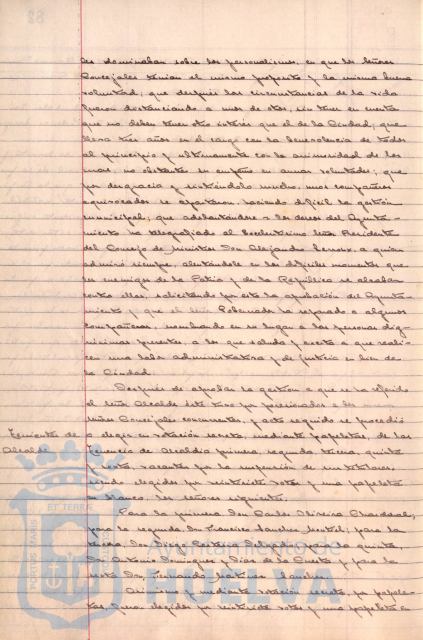 les dominaban sobre los personalismos, en que los Señores
Concejales tenian el mismo proposito y la misma buena
voluntad, que despues las circunstancias de la vida
fueron distanciando a unos de otros, sin tener en cuenta
que no deben tener otro interés que el de la Ciudad; que
lleva tres años en el cargo con la benevolencia de todos
al principio y ultimamente con la animosidad de los
mas, no obstante su empeño en aunar voluntades; que
por desgracia y sintiéndolo mucho, unos compañeros
equivocados se apartaron, haciendo dificil la gestión
municipal; que adelantándose a los deseos del Ayunta-
miento ha telegrafiado al Excelentisimo Señor Presidente
del Consejo de Ministros Don Alejandro Lerroux, a quien
admiró siempre, alentándole en los dificiles momentos que
los enemigos de la Patria y de la República se alzaban
contra ellas, solicitando por esto la aprobación del Ayunta-
miento y que el Señor Gobernador ha separado a algunos
compañeros, nombrando en su lugar a las personas dig-
nisimas presentes, a los que saluda y excita a que reali-
cen una labor administrativa y de justicia en bien de
la Ciudad.
Después de aprobar la gestión a que se ha referido
el Señor Alcalde éste tuvo por posesionados a los
Señores Concejales concurrentes, y acto seguido se procedió
Tenientes de
Alcalde
a elegir en votación secreta, mediante papeletas, de las
Tenencias de Alcaldia primera, segunda, tercera, quinta
y sexta, vacantes por la suspensión de sus titulares
siendo elegidos por veintisiete votos y una papeleta
en blanco, los señores siguientes.
Para la primera Don Carlos Oliveira Chardenal,
para la segunda Don Francisco Sanchez, para la
tercera, Don Diego, para la quinta,
Don Antonio Dominguez Diaz de la Cuesta y para la
sexta Don Fernando Sanchez.
Asi mismo y mediante votación secreta, por papele-
tas, fueron elegidos por veintisiete votos y una papeleta en
PORTUS MARIS ET TERRAE CUSTODIA
Ayuntamiento de
HUELVA